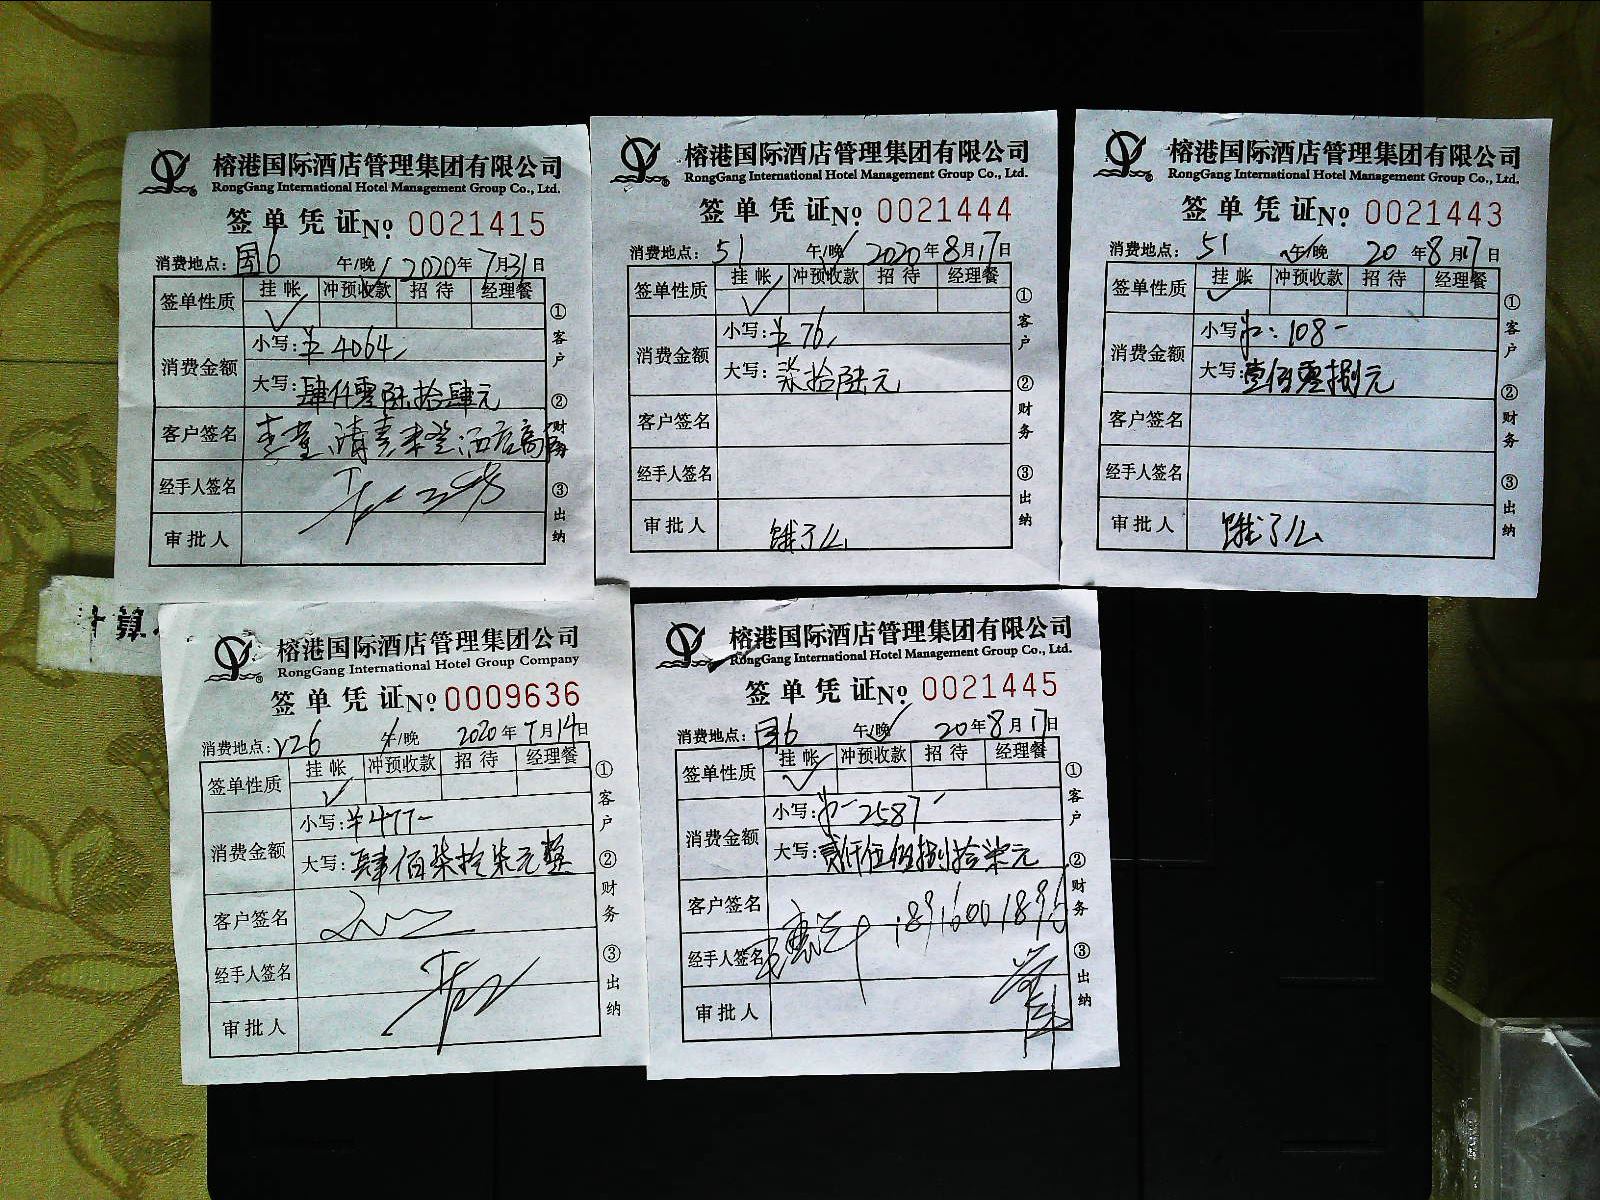 榕港国际酒店管理集团有限公司
RongGang International Hotel Management Group Co., Ltd.
签单凭证 No 0021415
消费地点: 国6 午/晚 2020年7月31日
签单性质 挂帐 冲预收款 招待 经理餐
消费金额 小写: ¥4064
大写: 肆仟零陆拾肆元
客户签名
经手人签名
审批人
①客户 ②财务 ③出纳
榕港国际酒店管理集团有限公司
RongGang International Hotel Management Group Co., Ltd.
签单凭证 No 0021444
消费地点: 51 午/晚 2020年8月17日
签单性质 挂帐 冲预收款 招待 经理餐
消费金额 小写: ¥76
大写: 柒拾陆元
客户签名
经手人签名
审批人 饿了么
①客户 ②财务 ③出纳
榕港国际酒店管理集团有限公司
RongGang International Hotel Management Group Co., Ltd.
签单凭证 No 0021443
消费地点: 51 午/晚 20年8月17日
签单性质 挂帐 冲预收款 招待 经理餐
消费金额 小写: 108-
大写: 壹佰零捌元
客户签名
经手人签名
审批人 饿了么
①客户 ②财务 ③出纳
计算
榕港国际酒店管理集团公司
RongGang International Hotel Group Company
签单凭证 No 0009636
消费地点: 226 午/晚 2020年7月14日
签单性质 挂帐 冲预收款 招待 经理餐
消费金额 小写: ¥477-
大写: 肆佰柒拾柒元整
客户签名
经手人签名
审批人
①客户 ②财务 ③出纳
榕港国际酒店管理集团有限公司
RongGang International Hotel Management Group Co., Ltd.
签单凭证 No 0021445
消费地点: 国6 午/晚 20年8月17日
签单性质 挂帐 冲预收款 招待 经理餐
消费金额 小写: 2587-
大写: 贰仟伍佰捌拾柒元
客户签名 18916001896
经手人签名
审批人
①客户 ②财务 ③出纳